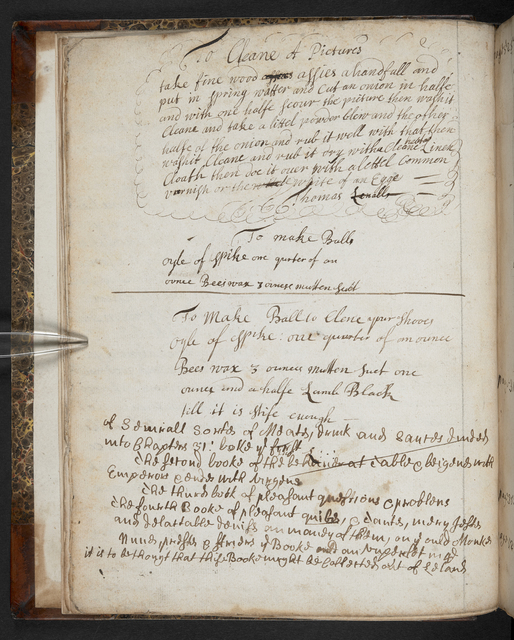 To Cleane A Pictures
take fine wood assies a handfull and
put in spring watter and Cut an onion in halfe
and with one halfe scour the picture then wash it
Cleane and take a littel powder blew and the other
halfe of the onion and rub it well with that then
wash it Cleane and rub it dry with a Cleane Linen
Cloath then doe it over with a lettel Common
varnish or the white of an Egge
Thomas
To make Balls
oyle of spike one qurter of an
ounce Beeswax 3 ounces mutten suet
To Make Ball to Clene your shooes
oyle of spike one quarter of an ounce
Bees wax 3 ounces mutten suet one
ounce and a halfe Lamb Black
till it is stife enough
of Severall sortes of Meates, drink and
into Chapters 31: booke y first
The second booke of the at table & beigens with
Emperors & ends with
The third book of pleasant questions & problems
The fourth Booke of pleasant & tants, merry Jestes
and delectable many of them, on ould Monkes
Nunes, & of Booke and an
it is to be thought that this Booke might be Collected out of Leland